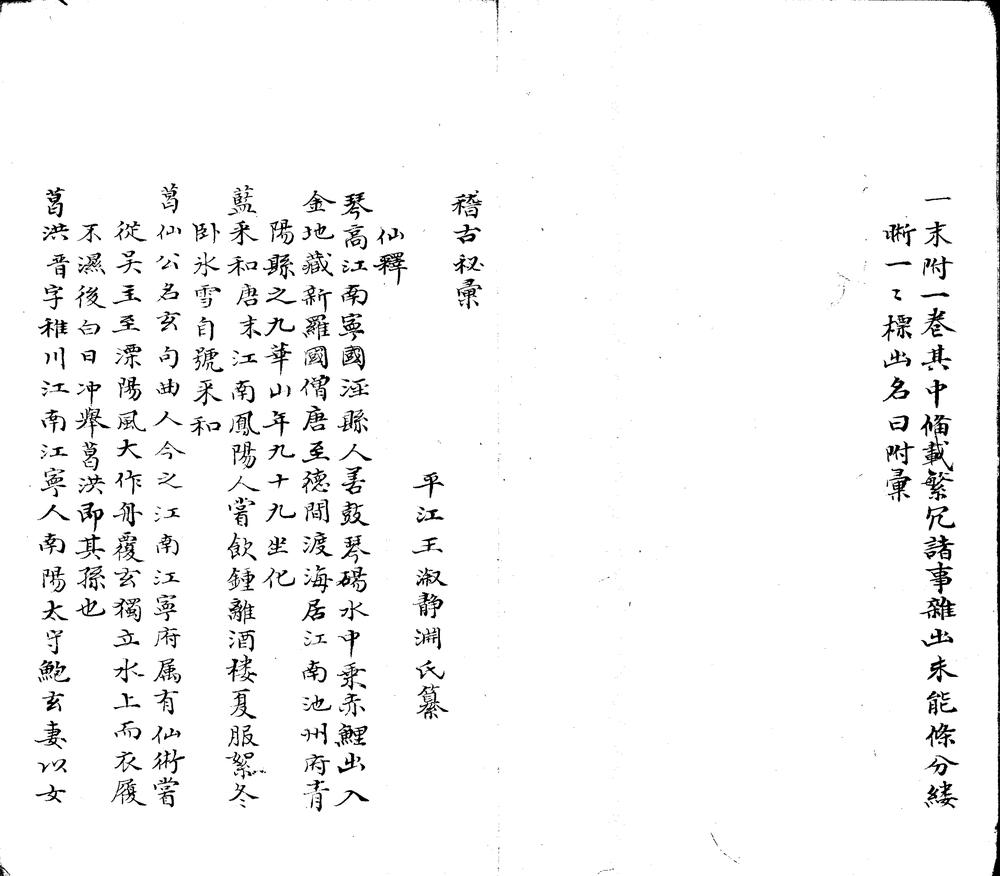 一末附一卷其中備載繁冗諸事雜出未能條分縷
晰一〻標出名曰附彚
稽古秘彚
平江王淑静淵氏纂
仙釋
琴高江南寧國涇縣人善鼓琴碭水中乗赤鯉出入
金地藏新羅國僧唐至德間渡海居江南池州府青
陽縣之九華山年九十九坐化
藍釆和唐末江南鳳陽人嘗飲鍾離酒楼夏服絮冬
卧氷雪自號釆和
葛仙公名玄句曲人今之江南江寧府属有仙術嘗
從吴主至溧陽風大作舟覆玄獨立水上而衣履
不濕後白日冲舉葛洪即其孫也
葛洪晋字稚川江南江寧人南陽太守鮑玄妻以女